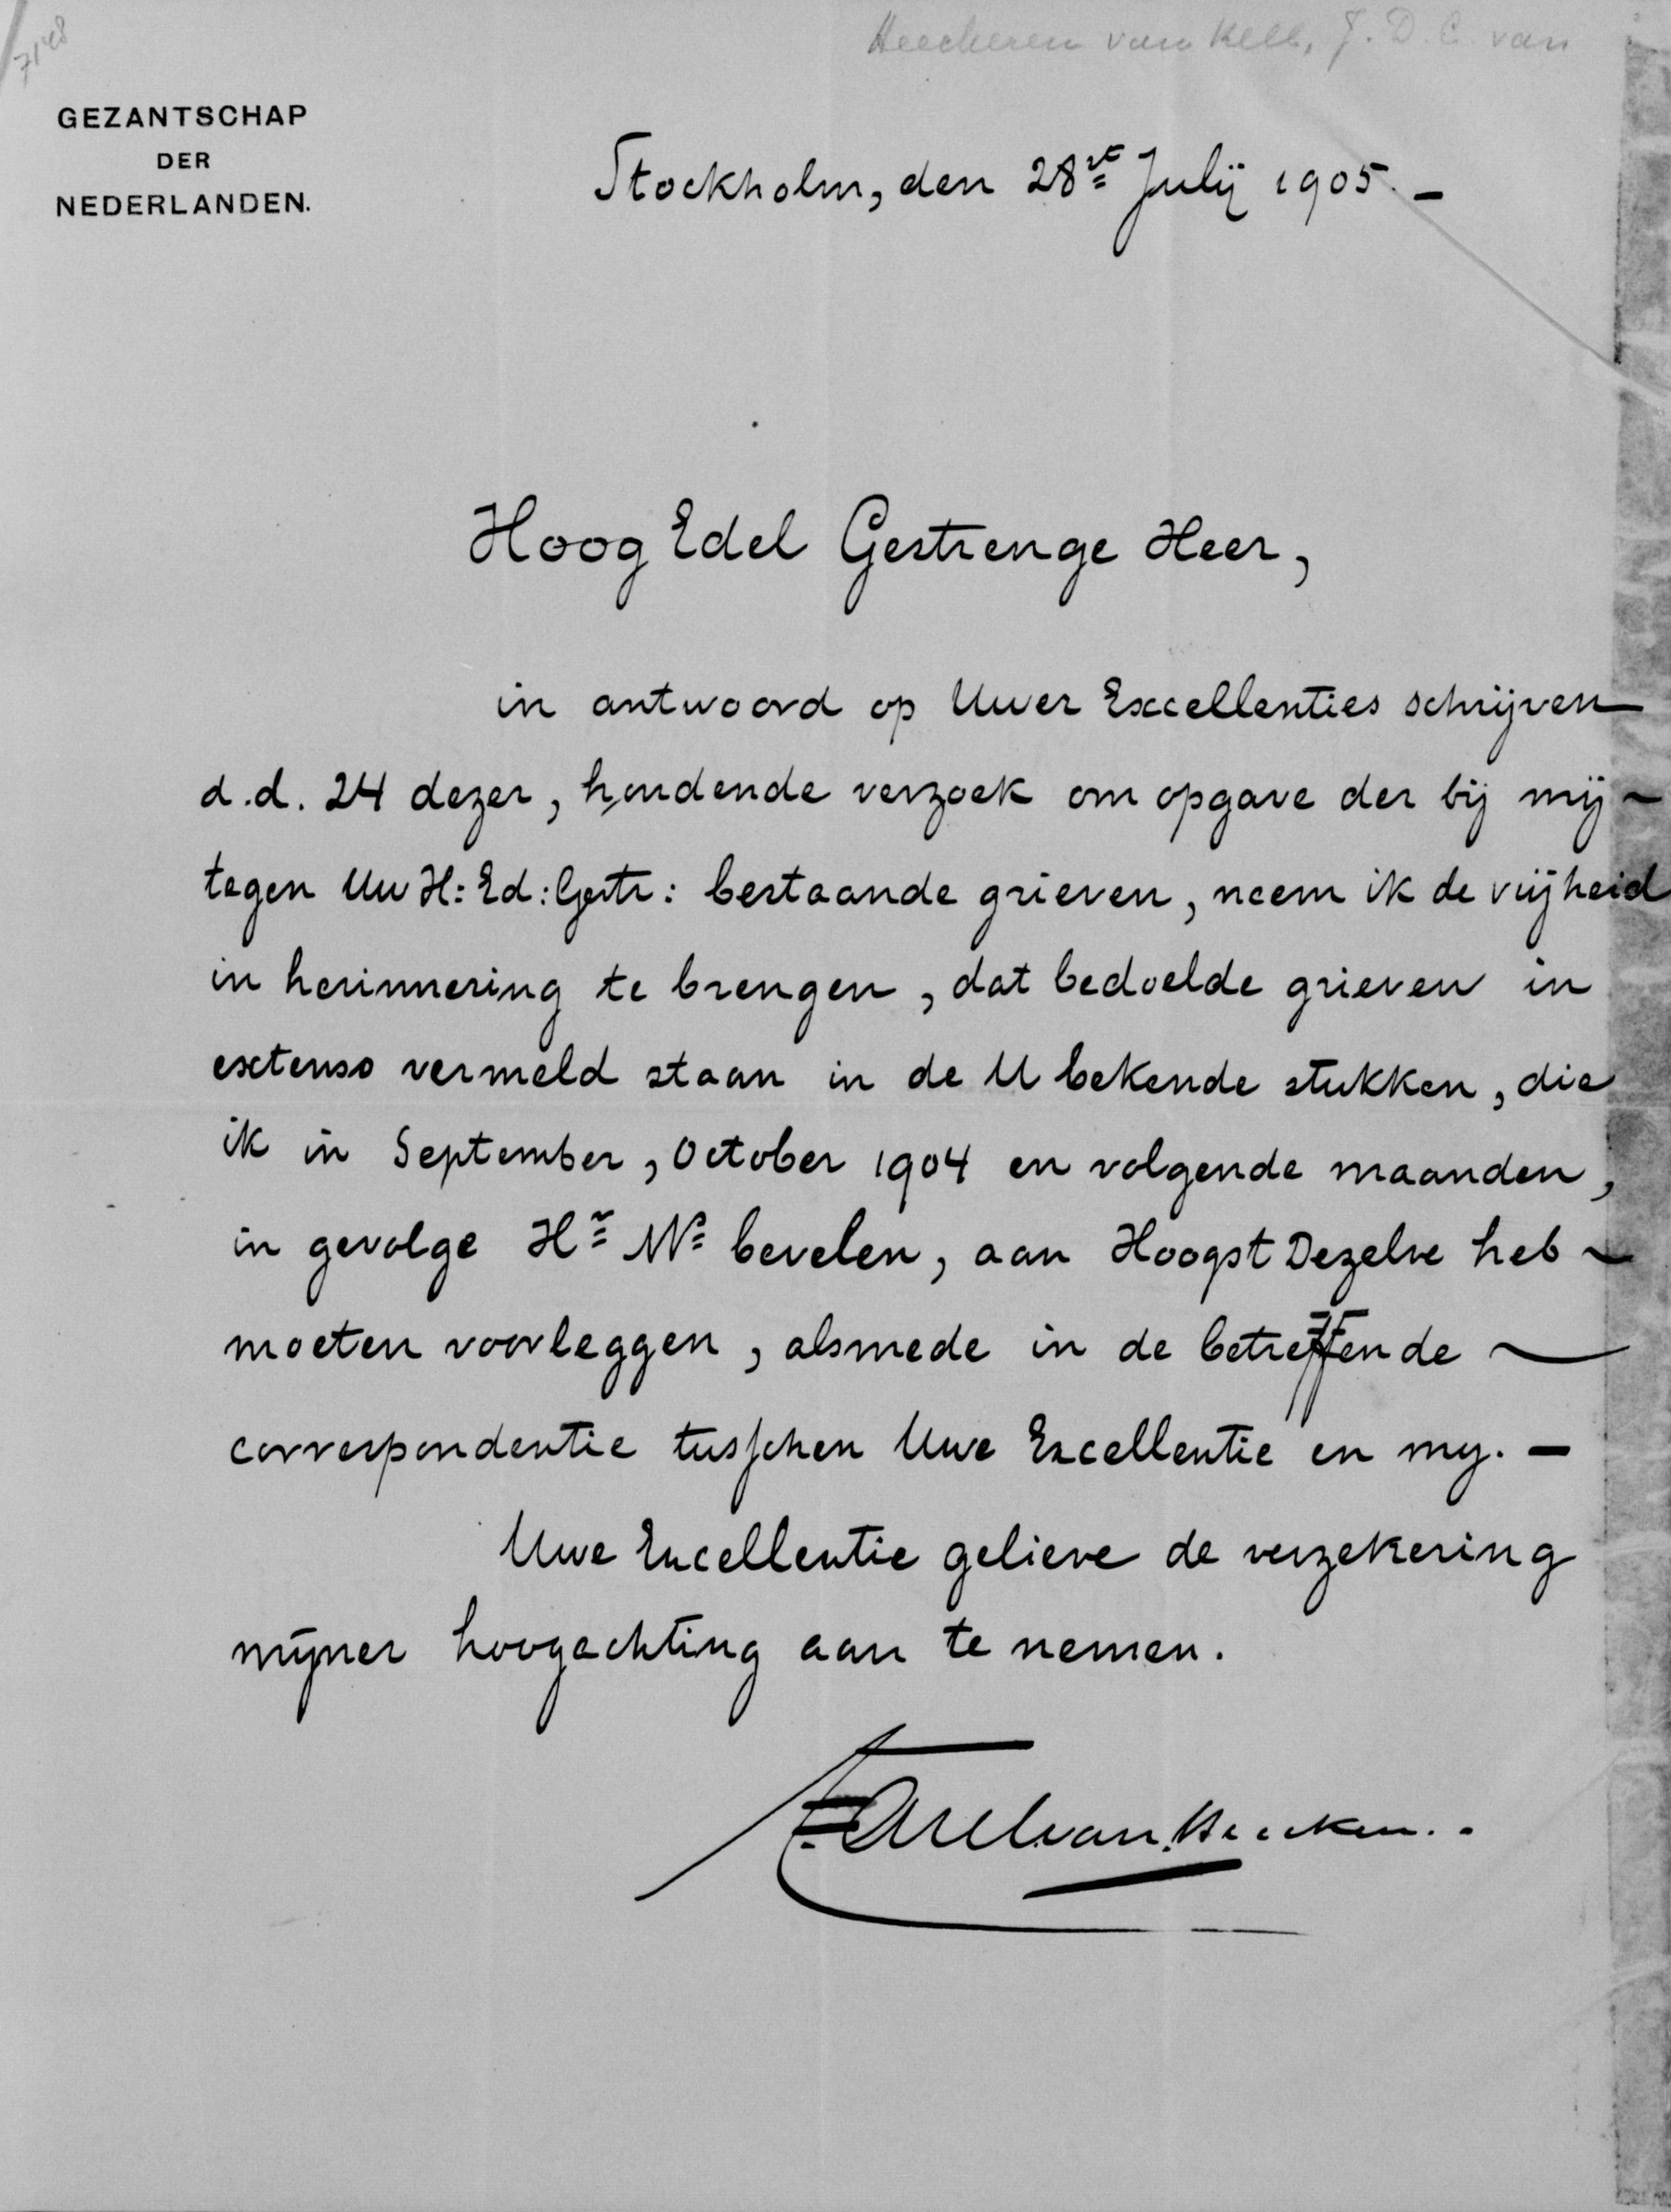 7148
Heeckeren van Kell, J. D. C. van
GEZANTSCHAP
DER
NEDERLANDEN.
Stockholm, den 28st Julij 1905. -
Hoog Edel Gestrenge Heer,
in antwoord op Uwer Excellenties schrijven
d.d. 24 dezer, houdende verzoek om opgave der bij mij
tegen Uw H: Ed: Gestr: bestaande grieven, neem ik de vrijheid
in herinnering te brengen, dat bedoelde grieven in
extenso vermeld staan in de U bekende stukken, die
ik in September, October 1904 en volgende maanden,
in gevolge Hr Ms bevelen, aan Hoogst Dezelve heb
moeten voorleggen, alsmede in de betreffende
correspondentie tusschen Uwe Excellentie en my. -
Uwe Excellentie gelieve de verzekering
mijner hoogachting aan te nemen.
van Heeckeren..